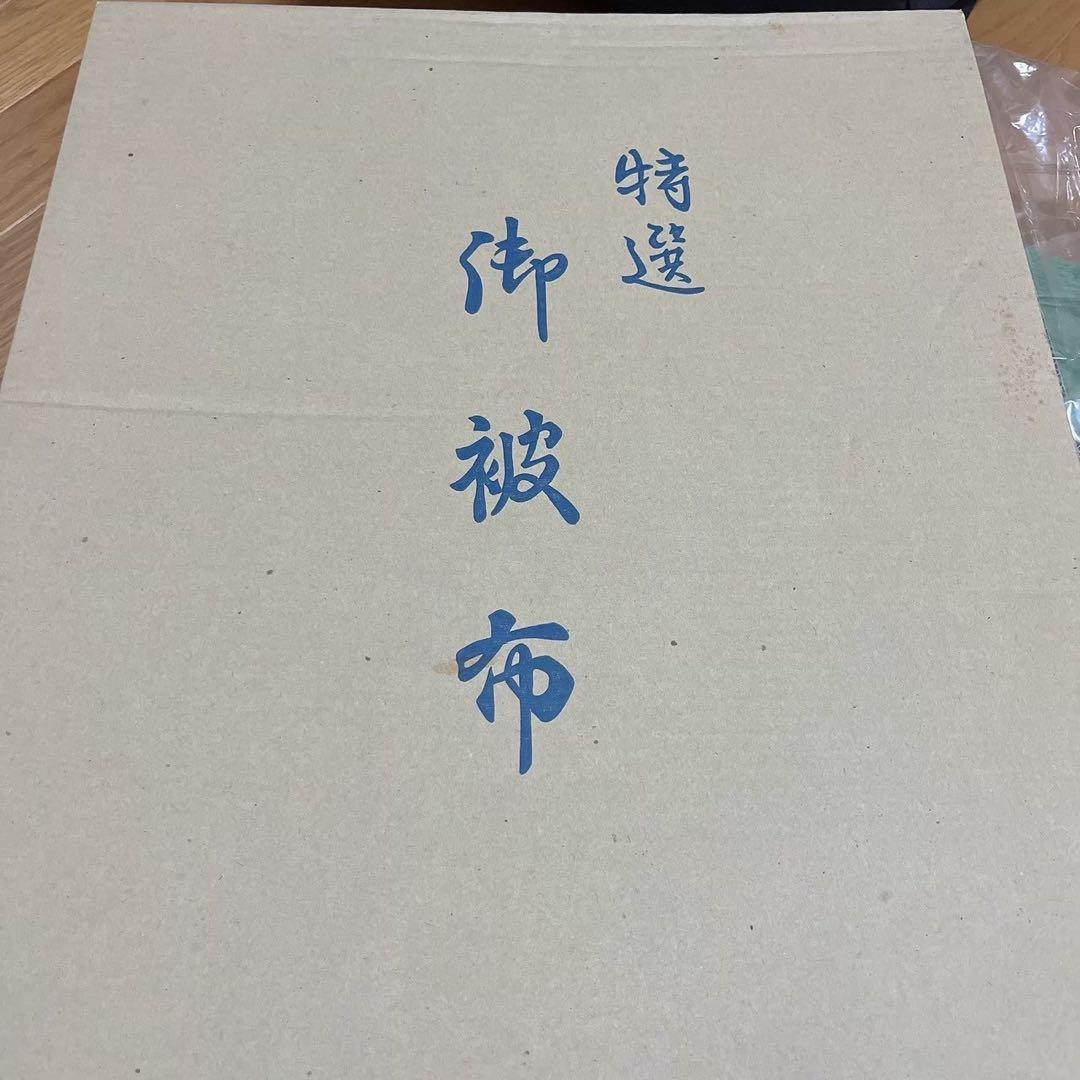 特選
御被布